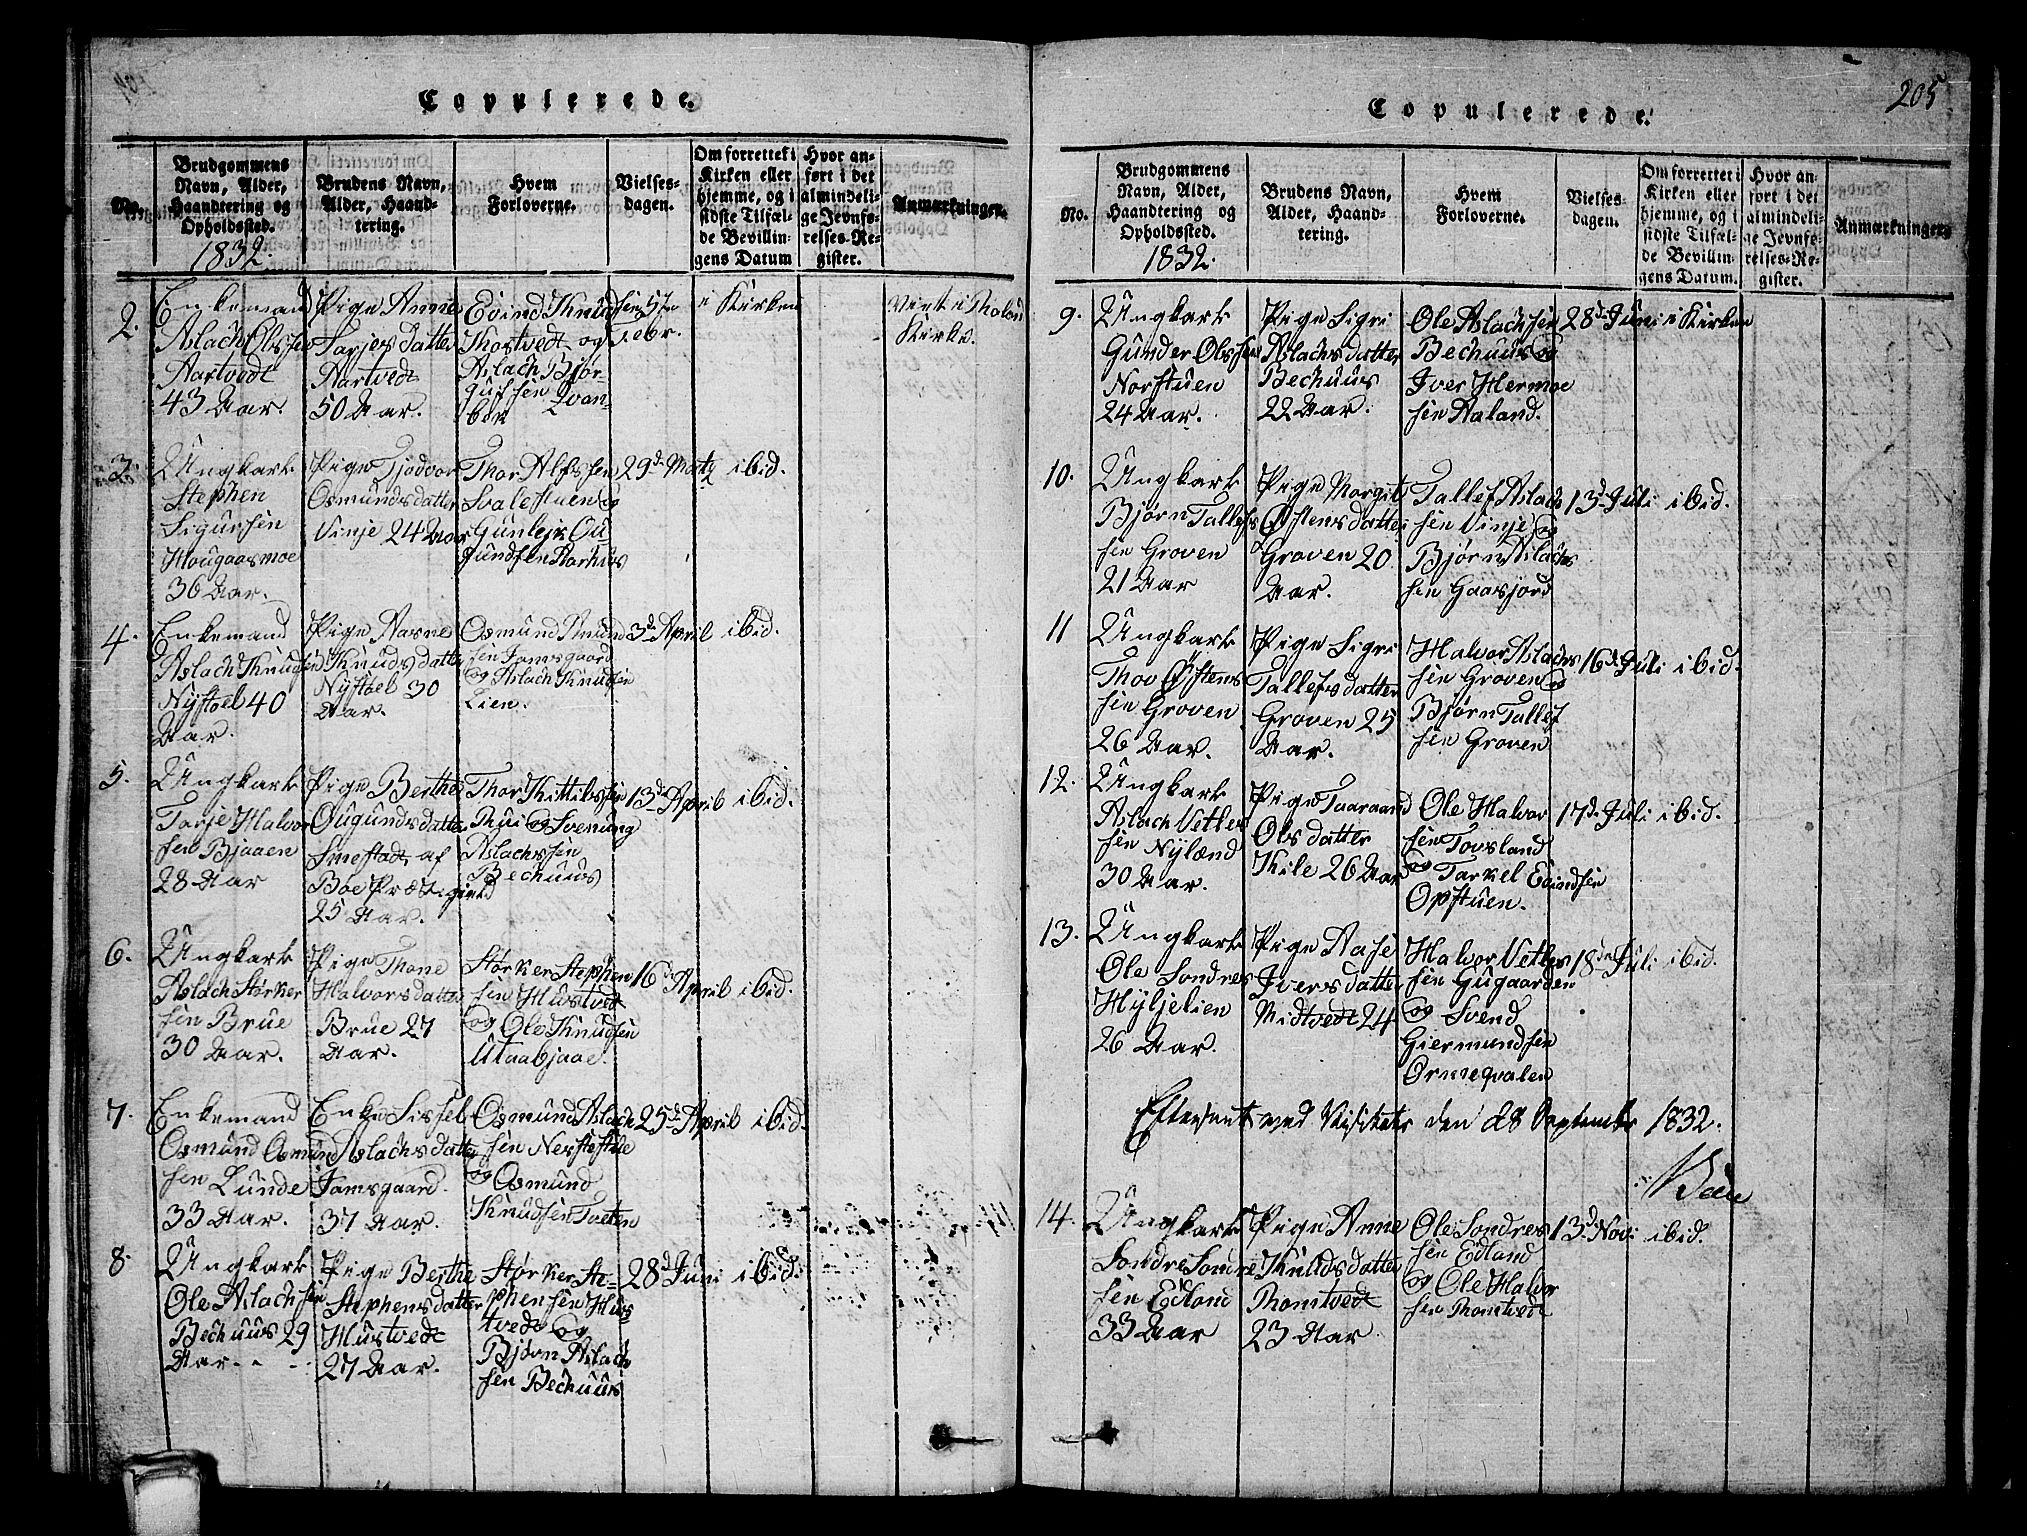 Copulerede.
No.
Brudgommens
Navn, Alder,
Haandtering og
Opholdssted.
1832.
Brudens Navn,
Alder, Haand-
tering.
Hvem
Forloverne.
Vielses-
dagen.
Om forrettet i
Kirken eller
hjemme, og i
sidste Tilfæl-
de Bevillin-
gens Datum
Hvor an-
ført i det
almindeli-
ge Jevnfø-
relses-Re-
gister.
Anmærkninger.
2.
Enkemand
Aslach Olssen
Aartvedt
43 Aar.
Pige Anne
Tarjersdatter
Aartvedt
50 Aar.
Eivind Knudsen
Thortvedt og
Aslach Bjør-
gufsen Qvan-
bek
5te
Febr.
i Kirken
Viet i
Kirke.
3.
Ungkark
Stephen
Sigursen
Hougaasmoe
36 Aar.
Pige Tjødvor
Osmundsdatter
Vinje 24 Aar
Thor Alfssen
Svalestuen og
Gunleik Ou-
gundsen Aarhus
29de Martz
ibid.
4.
Enkemand
Aslach Knudsen
Nystoel 40
Aar.
Pige Aasne
Knudsdatter
Nystoel 30
Aar.
Osmund Amund
sen Jamsgaard
og Aslach Knudsen
Lien.
3de April
ibid.
5.
Ungkark
Tarje Halvor
sen Bjaaen
28 Aar
Pige Berthe
Ougundsdatter
Smestadt af
Boe Præstegield
25 Aar.
Thor Kittilssen
Thui og Svenung
Aslachssen
Bechuus
13de April
ibid.
6.
Ungkark
Aslach Størker
sen Brue
30 Aar.
Pige Thone
Halvorsdatter
Brue 27
Aar.
Størker Stephen
sen Hustvedt
og Ole Knudsen
Utaabjaae.
16de April
ibid.
7.
Enkemand
Osmund Osmund
sen Lunde
33 Aar.
Enke Sissel
Aslachsdatter
Jamsgaard.
37 Aar.
Osmund Aslach
sen Nerstestule
og Osmund
Knudsen Tveten
25de April
ibid.
8.
Ungkark
Ole Aslachsen
Bechuus 29
Aar
Pige Berthe
Stephensdatter
Hustvedt
27 Aar.
Størker Ste-
phensen Hus-
tvedt og
Bjørn Aslach
sen Bechuus
28de Juni
ibid.
205
Copulerede.
No.
Brudgommens
Navn, Alder,
Haandtering og
Opholdssted.
1832.
Brudens Navn,
Alder, Haand-
tering.
Hvem
Forloverne.
Vielses-
dagen.
Om forrettet i
Kirken eller
hjemme, og i
sidste Tilfæl-
de Bevillin-
gens Datum.
Hvor an-
ført i det
almindeli-
ge Jevnfø-
relses-Re-
gister.
Anmærkninger
9.
Ungkark
Gunder Olssen
Norstuen
24 Aar.
Pige Sigri
Aslachsdatter
Bechuus
22 Aar.
Ole Aslachsen
Bechuus og
Iver Hermoe
sen Aaland.
28de Juni
i Kirken
10.
Ungkark
Bjørn Tallefs
sen Groven
21 Aar
Pige Margit
Østensdatter
Groven 20
Aar.
Tallef Aslach
sen Vinje og
Bjørn Aslachs
sen Gaasjord
13de Juli
ibid.
11
Ungkark
Thov Østens
sen Groven
26 Aar.
Pige Sigri
Tallefsdatter
Groven 25
Aar.
Halvor Aslachs
sen Groven og
Bjørn Tallef
sen Groven
16de Juli
ibid.
12.
Ungkark
Aslach Vetles
sen Nylænd
30 Aar.
Pige Taaraand
Olsdatter
Kile 26 Aar
Ole Halvor
sen Tovsland
og Tarkel Eivindsen
Opstuen.
17de Juli
ibid.
13.
Ungkark
Ole Sondres
Hyljelien
26 Aar.
Pige Aase
Iversdatter
Midtvedt 24
Halvor Vetles
sen Gugaarden
og Svend
Giermundsen
Ormeqvalen
18de Juli
ibid.
Efterseet ved Visitats den 28 September 1832.
14.
Ungkark
Sondre Sondre
sen Edland
33 Aar
Pige Anne
Knudsdatter
Thomtvedt
23 Aar
Ole Sondres
sen Edland
og Ole Halvor
sen Thomtvedt
13de Nov:
ibid.